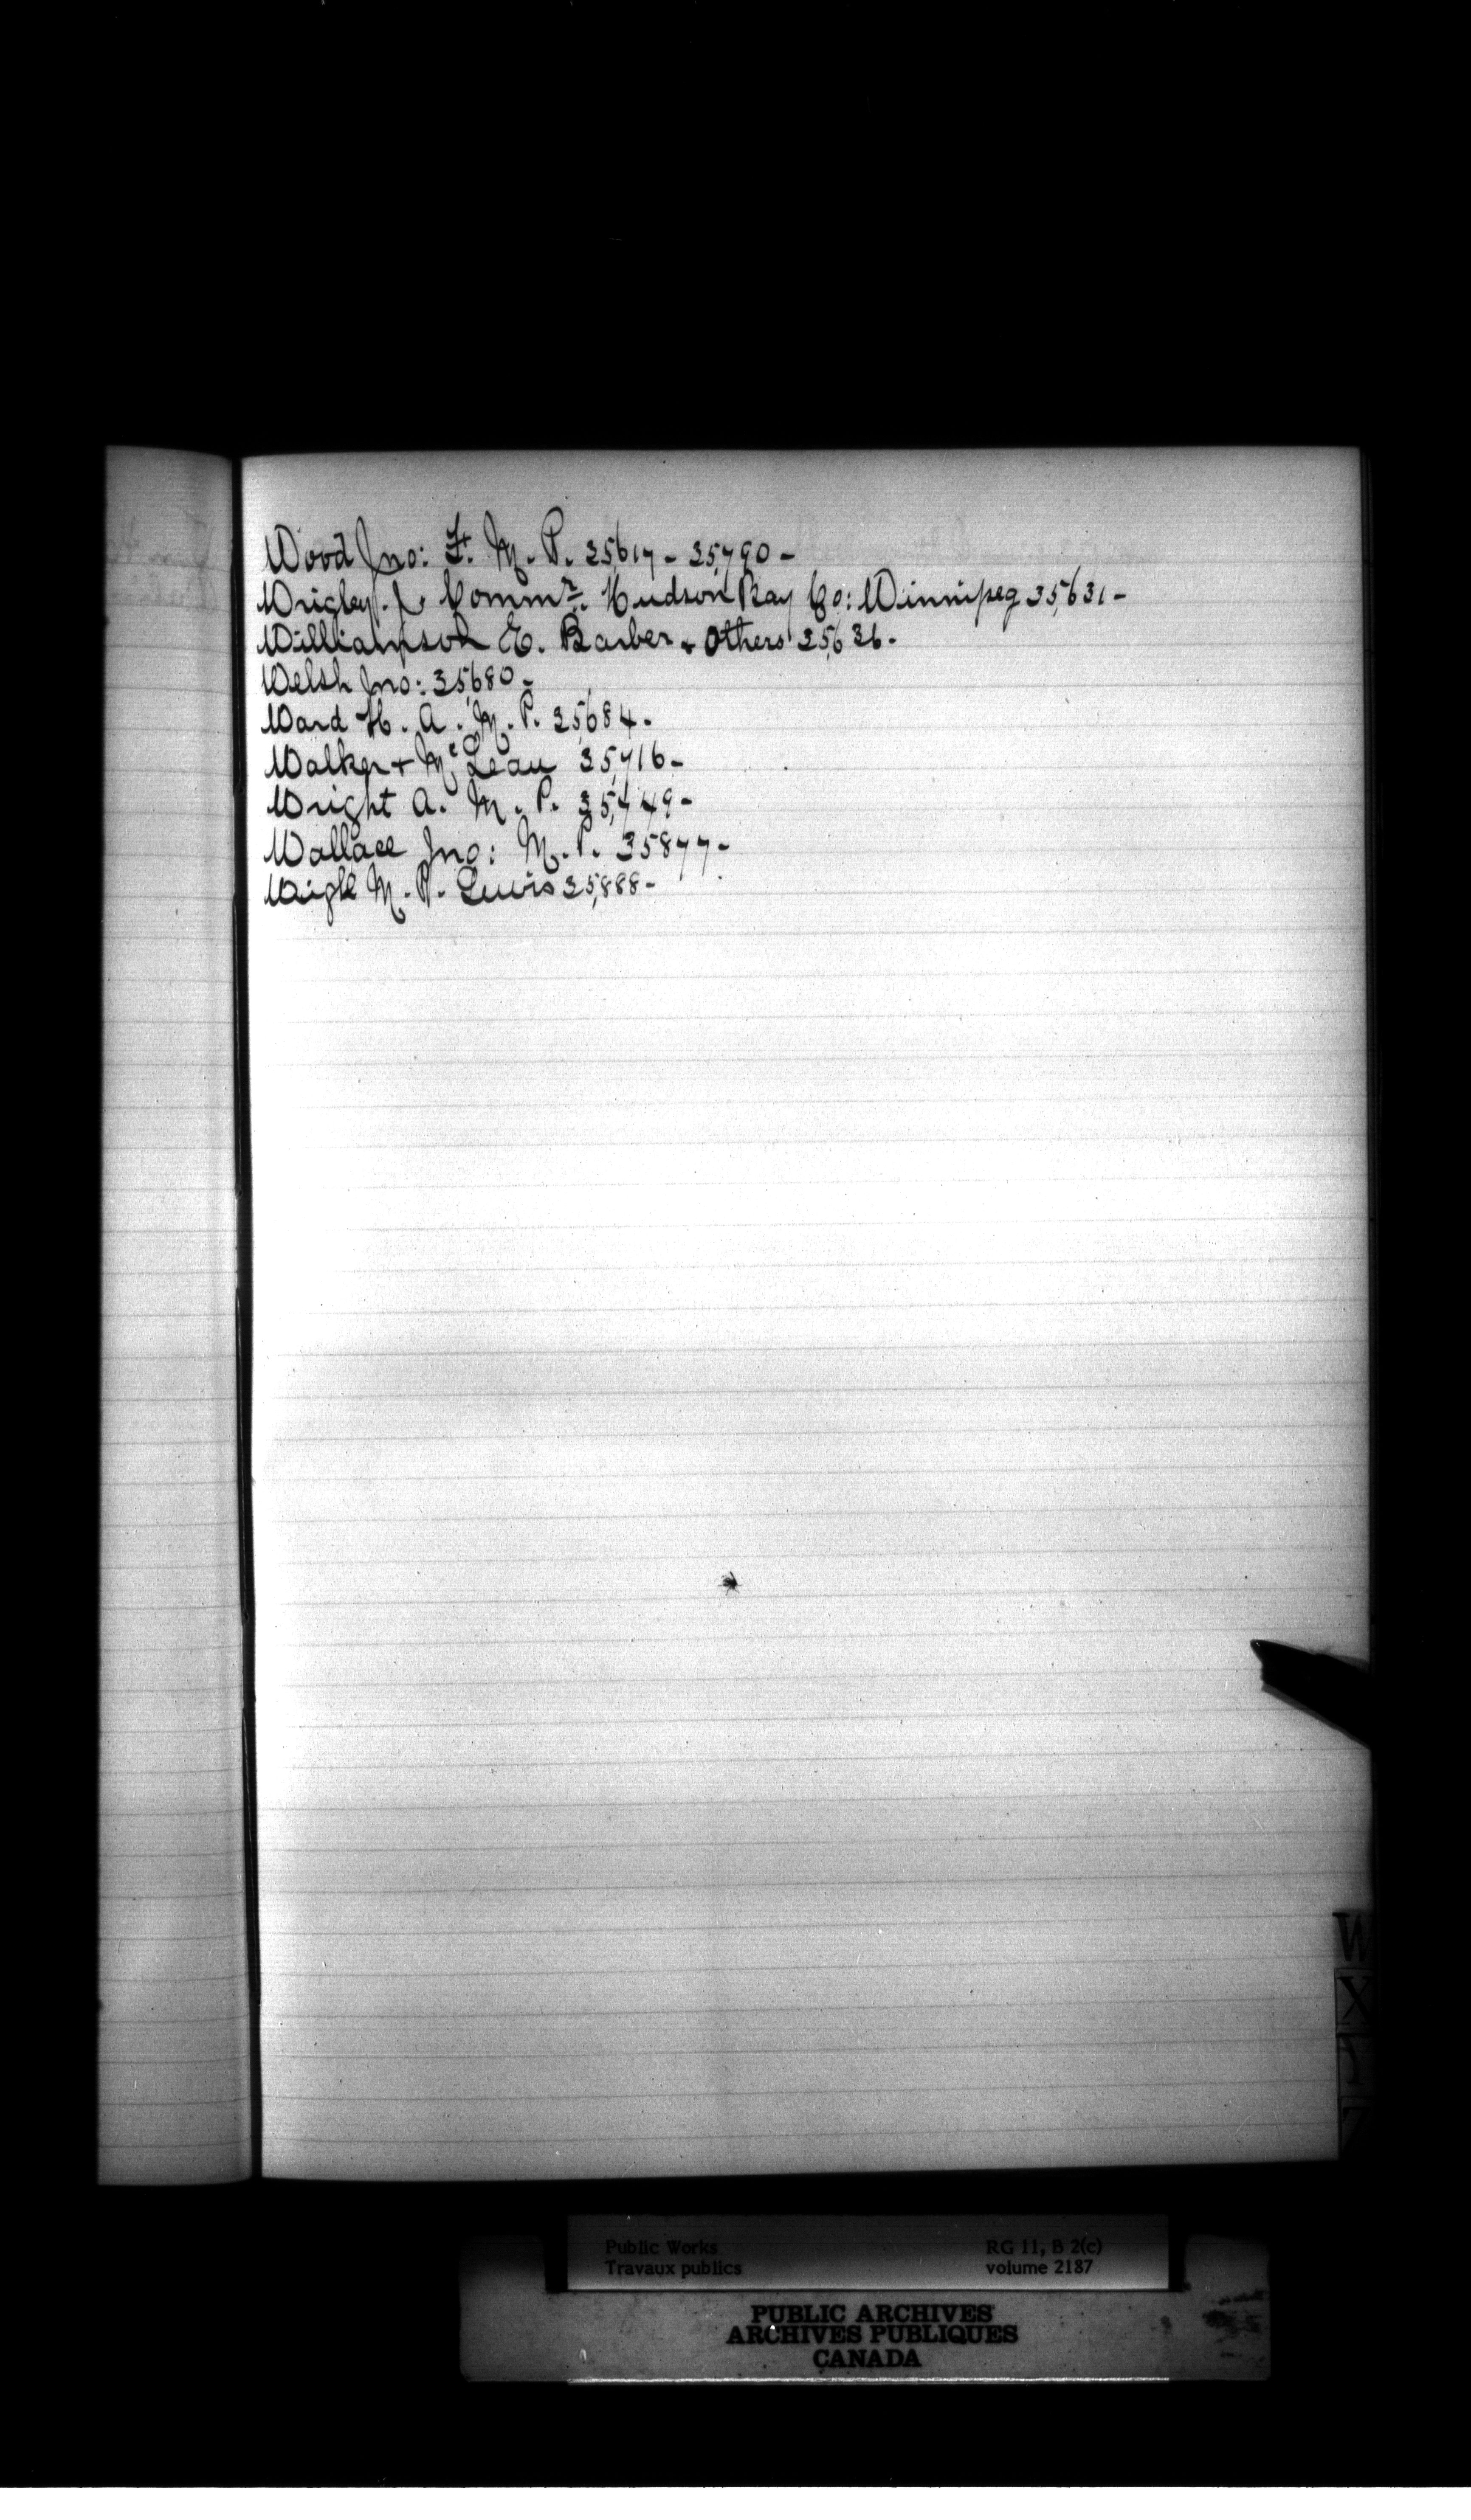 Wood Jno: F. M. P. 35,617 - 35,790 -
Wrigley. J. Commr. Hudson Bay Co: Winnipeg 35,631 -
Williamson E. Barber + Others 35,636 -
Welsh Jno: 35,680 -
Ward H. A. M. P. 35,684 -
Walker + McLean 35,716 -
Wright A. M. P. 35,749 -
Wallace Jno: M. P. 35877 -
Wigle M. P. Lewis 35,888 -
W
X
Y
Z
Public Works RG 11, B 2(c)
Travaux publics volume 2187
PUBLIC ARCHIVES
ARCHIVES PUBLIQUES
CANADA